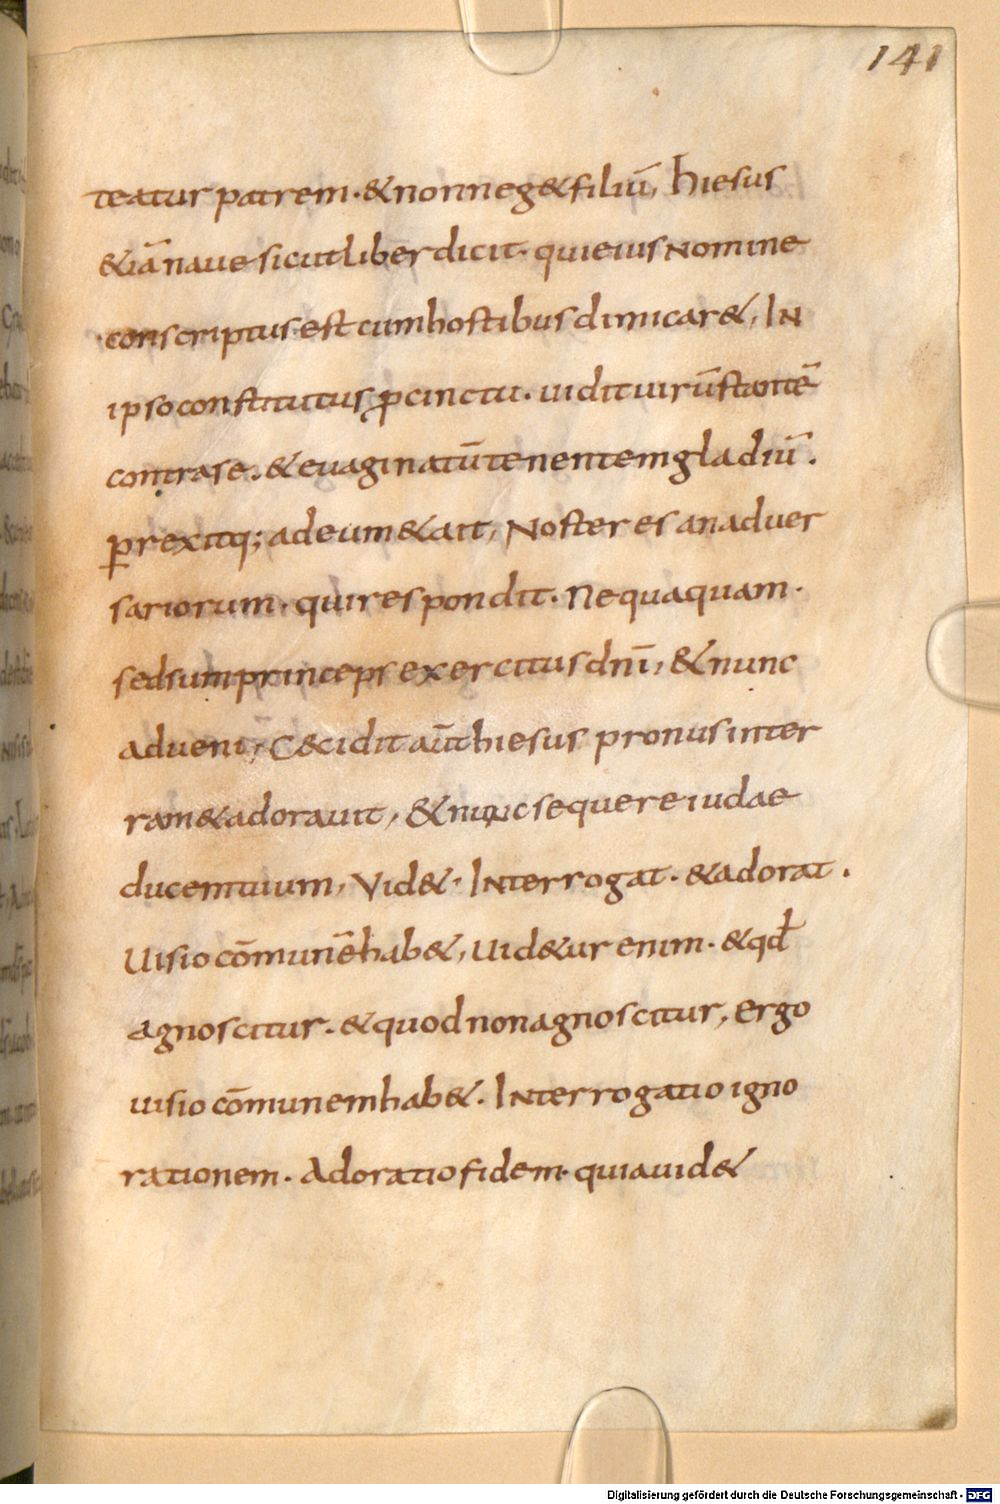 141
teatur patrem · & non neg& filiū, hiesus
& iā naue sicut liber dicit · qui eius nomine
conscriptus est cum hostibus dimicar&, In
ipso constitutus ꝓcinctu · uidit uirū stantē
contra se · & euaginatū tenentem gladiū ·
ꝑrexitq; ad eum & ait, Noster es an aduer
sariorum · qui respondit · Nequaquam ·
sed sum princeps exercitus dnī, & nunc
adueni, C&cidit aūt hiesus pronus in ter
ram & adorauit, & nunc sequere iudae
ducem tuum, Vid& · Interrogat · & adorat ·
Uisio cōmunē hab&, uid&ur enim · & qđ
agnoscitur · & quod non agnoscitur, ergo
uisio cōmunem hab& · Interrogatio igno
rationem · Adoratio fidem · quia uid&
Digitalisierung gefördert durch die Deutsche Forschungsgemeinschaft - DFG